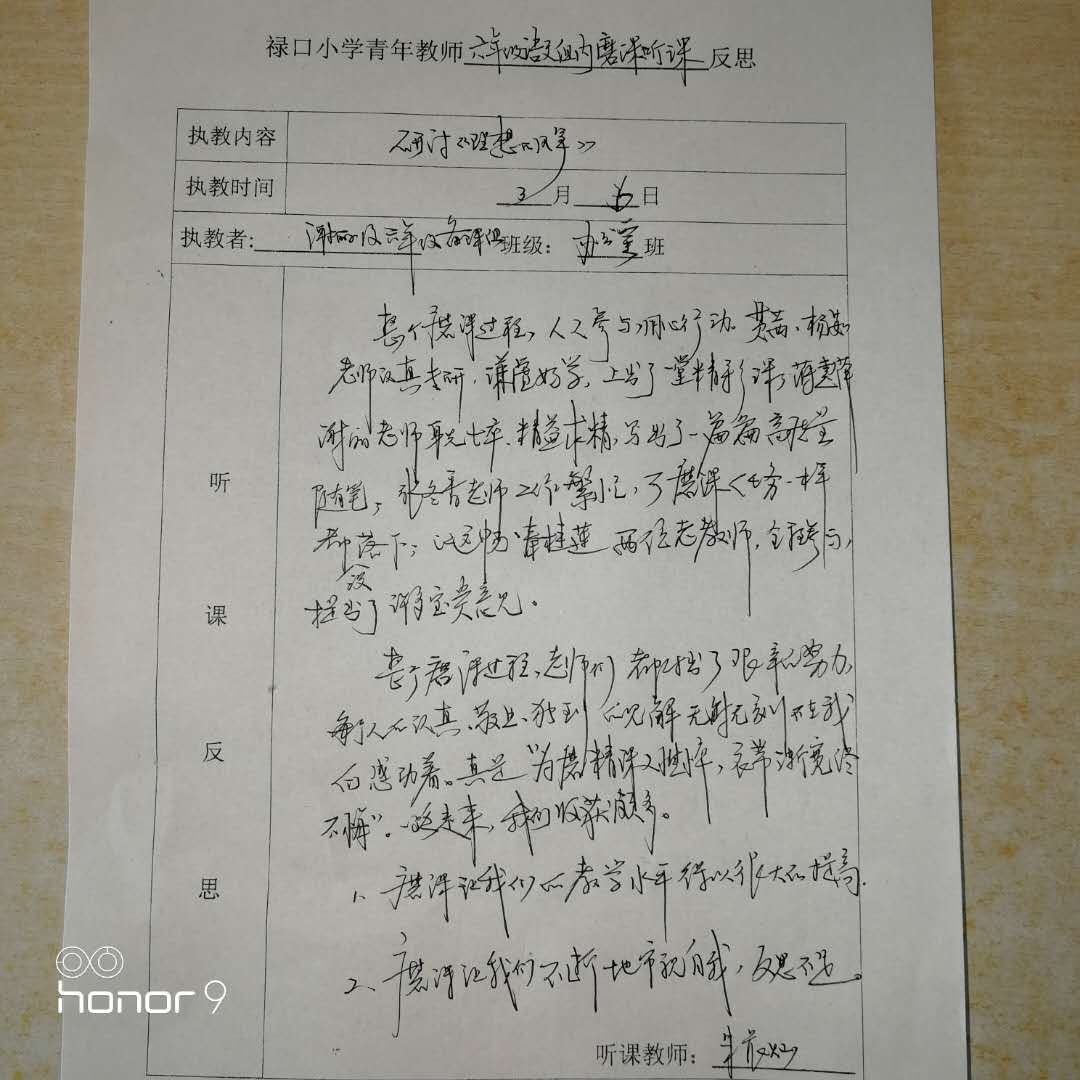 禄口小学青年教师六年级语文组内磨课听课反思
执教内容 研讨《理想的风筝》
执教时间 3月 日
执教者: 谢丽及六年级备课组 班级: 办公室班
听课反思
整个磨课过程，人人参与，用心行动。黄茜、杨
老师认真专研，谦虚好学，上出了一堂精彩课；蒋
谢丽老师 精益求精，写出了一篇篇高质量
随笔；张冬香老师工作繁忙，磨课任务一样
都没落下； 章桂莲两位老教师，全程参与，
提出了许多宝贵意见。
整个磨课过程，老师们都付出了艰辛的努力，
每个人的认真、敬业、独到的见解无时无刻不在
感动着。真是“为磨精课人憔悴，衣带渐宽终
不悔”。一路走来，我们收获颇多。
1、磨课让我们的教学水平得以很大的提高.
2、磨课让我们不断地审视自我，反思不足。
听课教师：
honor 9